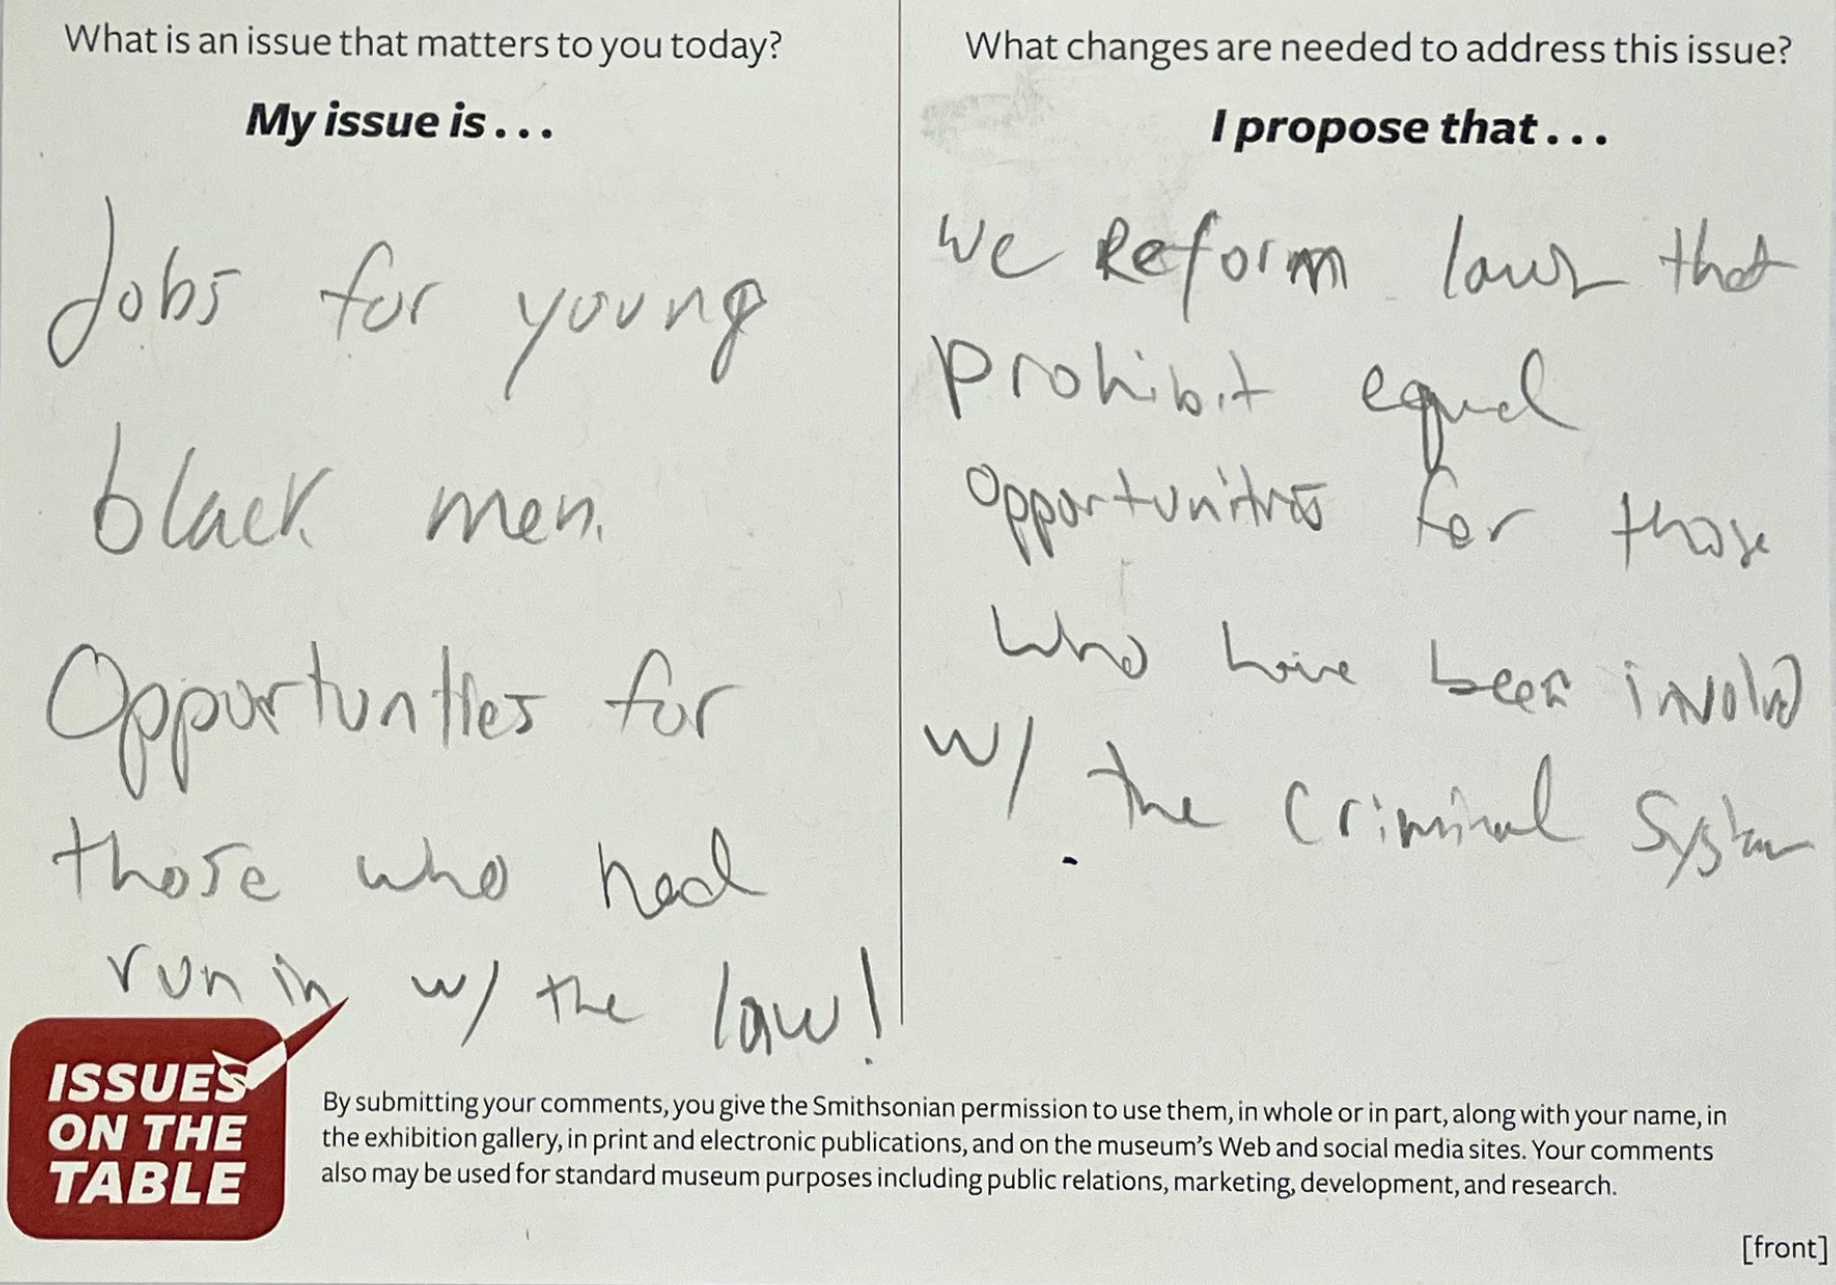 What is an issue that matters to you today?
My issue is...
Jobs for young
black men.
Opportunties for
those who had
run in w/ the law!
What changes are needed to address this issue?
I propose that...
we Reform laws that
prohibit equal
opportunities for those
who have been involvd
w/ the criminal system
ISSUES
ON THE
TABLE
By submitting your comments, you give the Smithsonian permission to use them, in whole or in part, along with your name, in
the exhibition gallery, in print and electronic publications, and on the museum's Web and social media sites. Your comments
also may be used for standard museum purposes including public relations, marketing, development, and research.
[front]